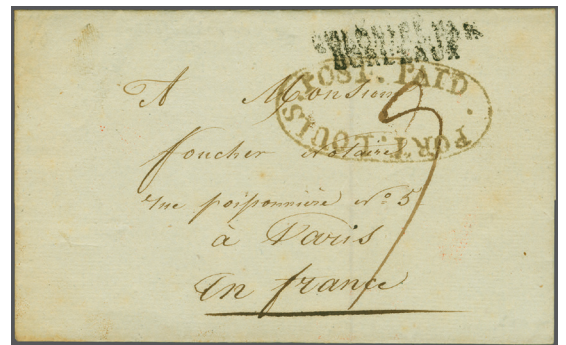 COLONIES PAR
BORDEAUX
POST. PAID
PORT. LOUIS
A Monsieur
foucher Notaire,
rue poissonnière N° 5
à Paris
En france